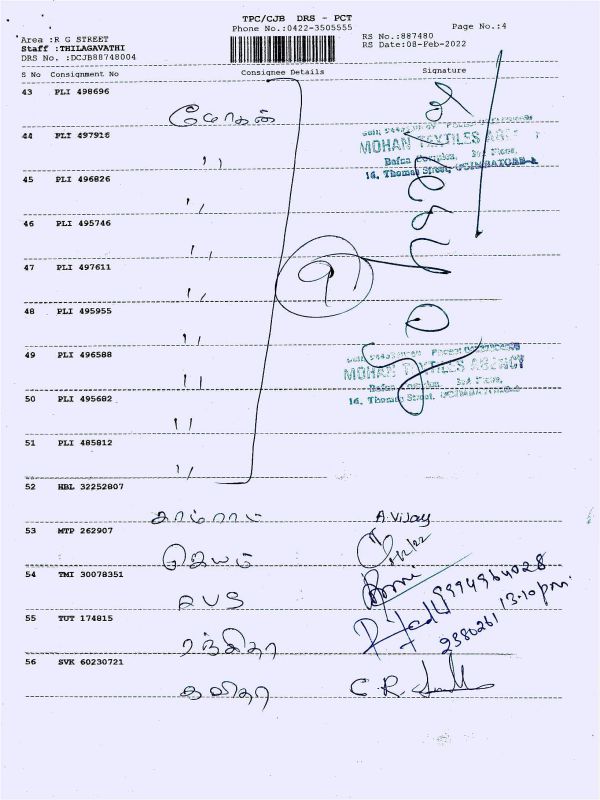 TPC/CJB DRS - PCT
Phone No.:0422-3505555
Page No.:4
Area :R G STREET
Staff :THILAGAVATHI
DRS No. :DCJB88748004
RS No.:887480
RS Date:08-Feb-2022
S No Consignment No Consignee Details Signature
43 PLI 498696
மோகன்
44 PLI 497916
,,
MOHAN TEXTILES AGENCY
16, Thomas Street, COIMBATORE-1
45 PLI 496826
,,
46 PLI 495746
,,
47 PLI 497611
,,
9
48 PLI 495955
,,
49 PLI 496588
,,
MOHAN TEXTILES AGENCY
16, Thomas Street,
50 PLI 495682
,,
51 PLI 485812
,,
52 HBL 32252807
காம்ராட் A.Vijay
53 MTP 262907
ஜெயம்
54 TMI 30078351
RVS
55 TUT 174815
ரந்கிதா
2380261 13.10pm
56 SVK 60230721
கவிதா C.R